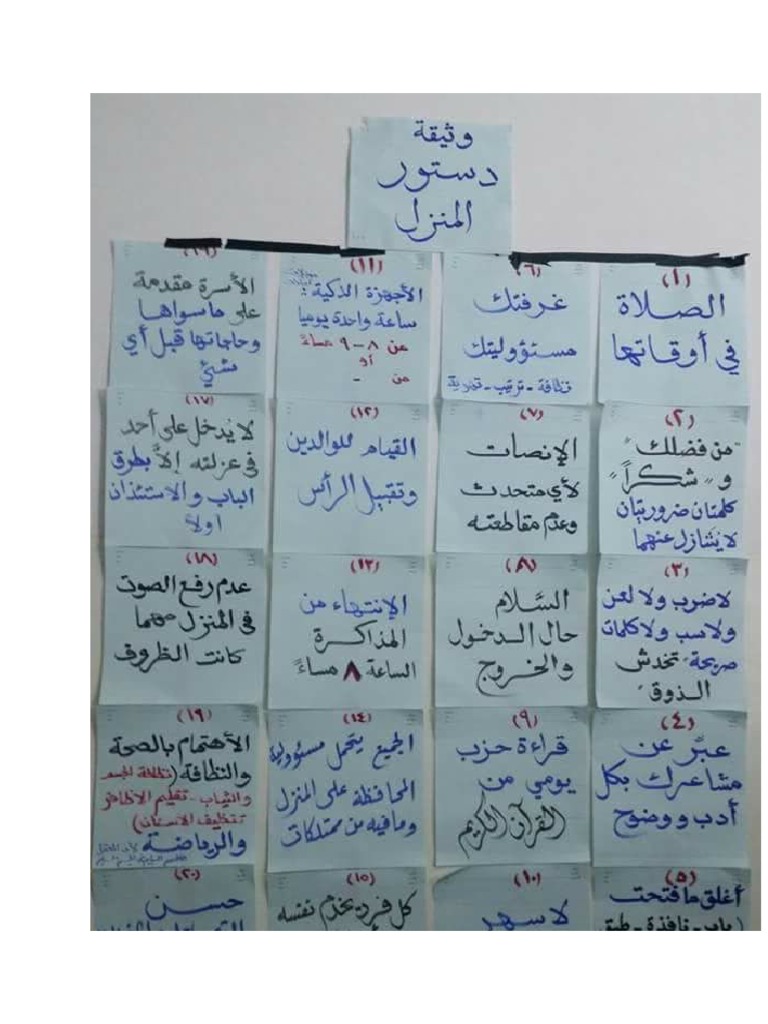 وثيقة
دستور
المنزل
(١)
الصلاة
في أوقاتها
(٢)
"من فضلك"
و "شكراً"
كلمتان ضروريتان
لا يتنازل عنهما
(٣)
لا ضرب ولا لعن
ولا سب ولا كلمات
صريحة "تخدش
الذوق"
(٤)
عبّر عن
مشاعرك بكل
أدب ووضوح
(٥)
أغلق ما فتحت
(باب - نافذة - طبق
(٦)
غرفتك
مسئووليتك
نظافة - ترتيب - تهوية
(٧)
الإنصات
لأي متحدث
وعدم مقاطعته
(٨)
السَّلام
حال الدخول
والخروج
(٩)
قراءة حزب
يومي من
القرآن الكريم
(١٠)
لا سهر
(١١)
الأجهزة الذكية:
ساعة واحدة يوميا
من ٨-٩ مساءً
أو
من -
(١٢)
القيام للوالدين
وتقبيل الرأس
(١٣)
الإنتهاء من
المذاكرة
الساعة ٨ مساءً
(١٤)
الجميع يتحمل مسئوولية
المحافظة على المنزل
وما فيه من ممتلكات
(١٥)
كل فرد يخدم نفسه
(١٦)
الأسرة مقدمة
على ما سواها
وحاجاتها قبل أي
شيء
(١٧)
لا يُدخل على أحد
في عزلته إلّا بطرق
الباب والاستئذان
اولاً
(١٨)
عدم رفع الصوت
في المنزل مهما
كانت الظروف
(١٩)
الأهتمام بالصحة
والنظافة (نظافة الجسم
والثياب - تقليم الاظافر
تنظيف الاسنان)
والرياضة
(٢٠)
حسن